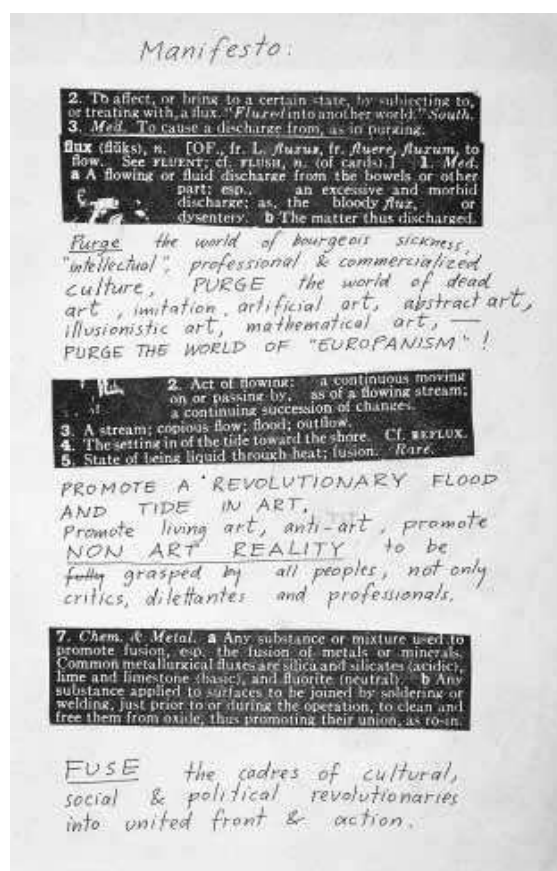 Manifesto:
2. To affect, or bring to a certain state, by subjecting to,
or treating with, a flux. "Fluxed into another world." South.
3. Med. To cause a discharge from, as in purging.
flux (flŭks), n. [OF., fr. L. fluxus, fr. fluere, fluxum, to
flow. See FLUENT; cf. FLUSH, n. (of cards).] 1. Med.
a A flowing or fluid discharge from the bowels or other
part: esp., an excessive and morbid
discharge; as, the bloody flux, or
dysentery. b The matter thus discharged.
Purge the world of bourgeois sickness,
"intellectual", professional & commercialized
culture, PURGE the world of dead
art, imitation, artificial art, abstract art,
illusionistic art, mathematical art, —
PURGE THE WORLD OF "EUROPANISM"!
2. Act of flowing: a continuous moving
on or passing by, as of a flowing stream;
a continuing succession of changes.
3. A stream; copious flow; flood; outflow.
4. The setting in of the tide toward the shore. Cf. REFLUX.
5. State of being liquid through heat; fusion. Rare.
PROMOTE A REVOLUTIONARY FLOOD
AND TIDE IN ART.
Promote living art, anti-art, promote
NON ART REALITY to be
fully grasped by all peoples, not only
critics, dilettantes and professionals.
7. Chem. & Metal. a Any substance or mixture used to
promote fusion, esp. the fusion of metals or minerals.
Common metallurgical fluxes are silica and silicates (acidic),
lime and limestone (basic), and fluorite (neutral). b Any
substance applied to surfaces to be joined by soldering or
welding, just prior to or during the operation, to clean and
free them from oxide, thus promoting their union, as rosin.
FUSE the cadres of cultural,
social & political revolutionaries
into united front & action.